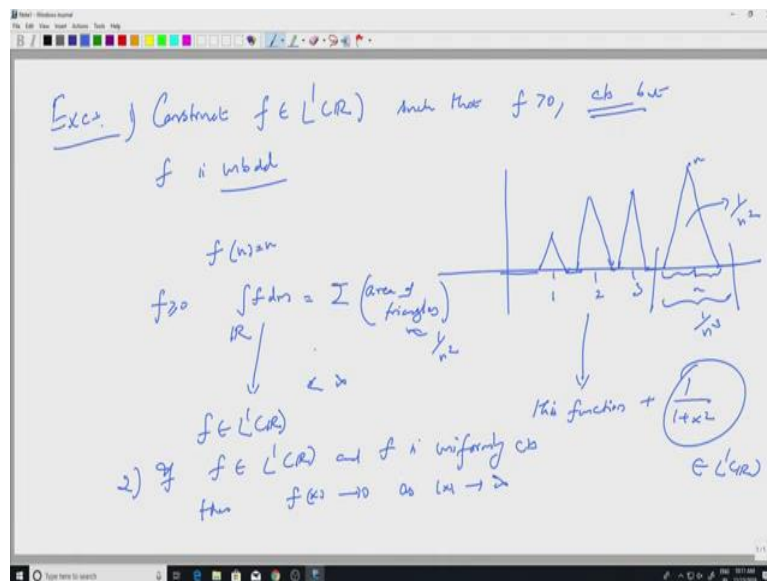 Note1 - Windows Journal
File Edit View Insert Actions Tools Help
Exc: 1) Construct f ∈ L¹(ℝ) such that f > 0, cts but
f is unbdd
n
1/n²
f(n) = n
f ≥ 0 ∫ f dm = Σ (area of triangles
ℝ 1/n²
1 2 3 n
1/n³
< ∞
this function + 1/(1+x²)
f ∈ L¹(ℝ)
∈ L¹(ℝ)
2) If f ∈ L¹(ℝ) and f is uniformly cts
then f(x) → 0 as |x| → ∞
1/1
Type here to search
ENG 10:11 AM